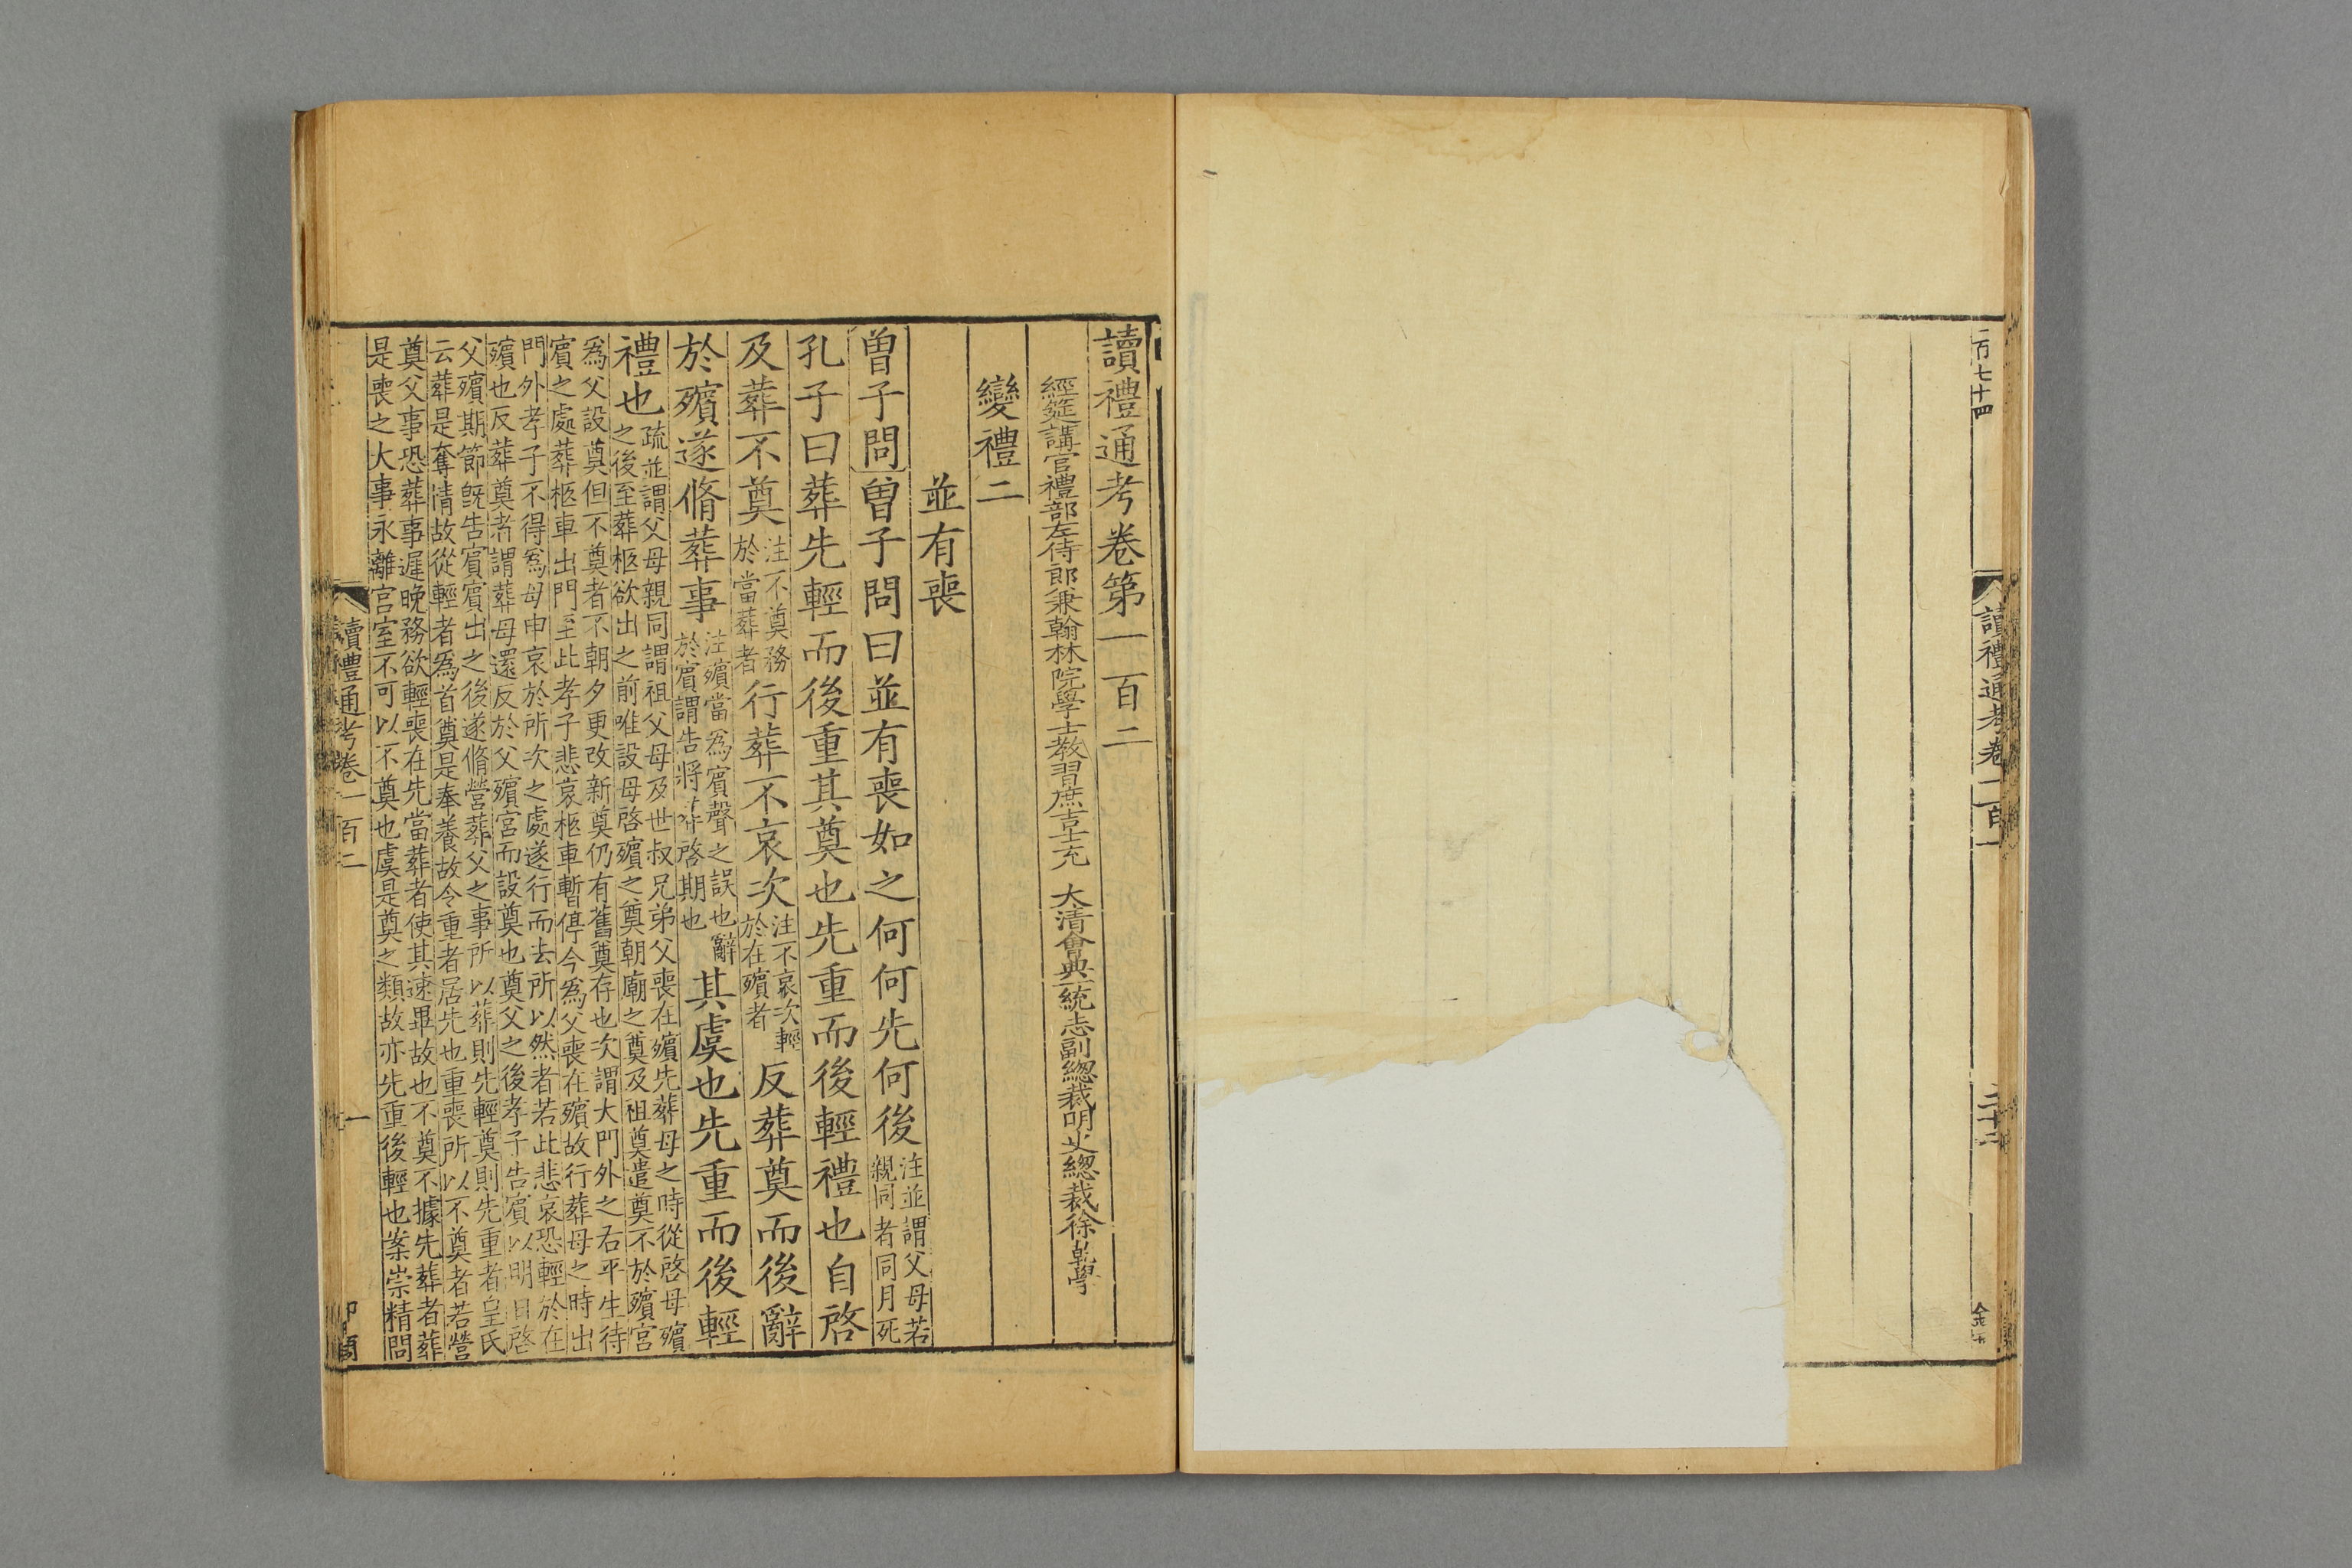 一百七十四
讀禮通考卷一百一
二十二
讀禮通考卷第一百二
經筵講官禮部左侍郎兼翰林院學士教習庶吉士充 大清會典一統志副總裁明史總裁徐乾學
變禮二
並有喪
曾子問曾子問曰並有喪如之何何先何後注並謂父母若親同者同月死
孔子曰葬先輕而後重其奠也先重而後輕禮也自啓
及葬不奠注不奠務於當葬者行葬不哀次注不哀次輕於在殯者反葬奠而後辭
於殯遂脩葬事注殯當爲賓聲之誤也辭於賓謂告將葬啓期也其虞也先重而後輕
禮也疏並謂父母親同謂祖父母及世叔兄弟父喪在殯先葬母之時從啓母殯
之後至葬柩欲出之前唯設母啓殯之奠朝廟之奠及祖奠遣奠不於殯宮
爲父設奠但不奠者不朝夕更改新奠仍有舊奠存也次謂大門外之右平生待
賓之處葬柩車出門至此孝子悲哀柩車暫停今爲父喪在殯故行葬母之時出
門外孝子不得爲母申哀於所次之處遂行而去所以然者若此悲哀恐輕於在
殯也反葬奠者謂葬母還反於父殯宮而設奠也奠父之後孝子告賓以明日啓
父殯期節旣告賓賓出之後遂脩營葬父之事所以葬則先輕奠則先重者皇氏
云葬是奪情故從輕者爲首奠是奉養故令重者居先也重喪所以不奠者若營
奠父事恐葬事遲晚務欲輕喪在先當葬者使其速畢故也不奠不據先葬者葬
是喪之大事永離宮室不可以不奠也虞是奠之類故亦先重後輕也案崇精問
讀禮通考卷一百二
一